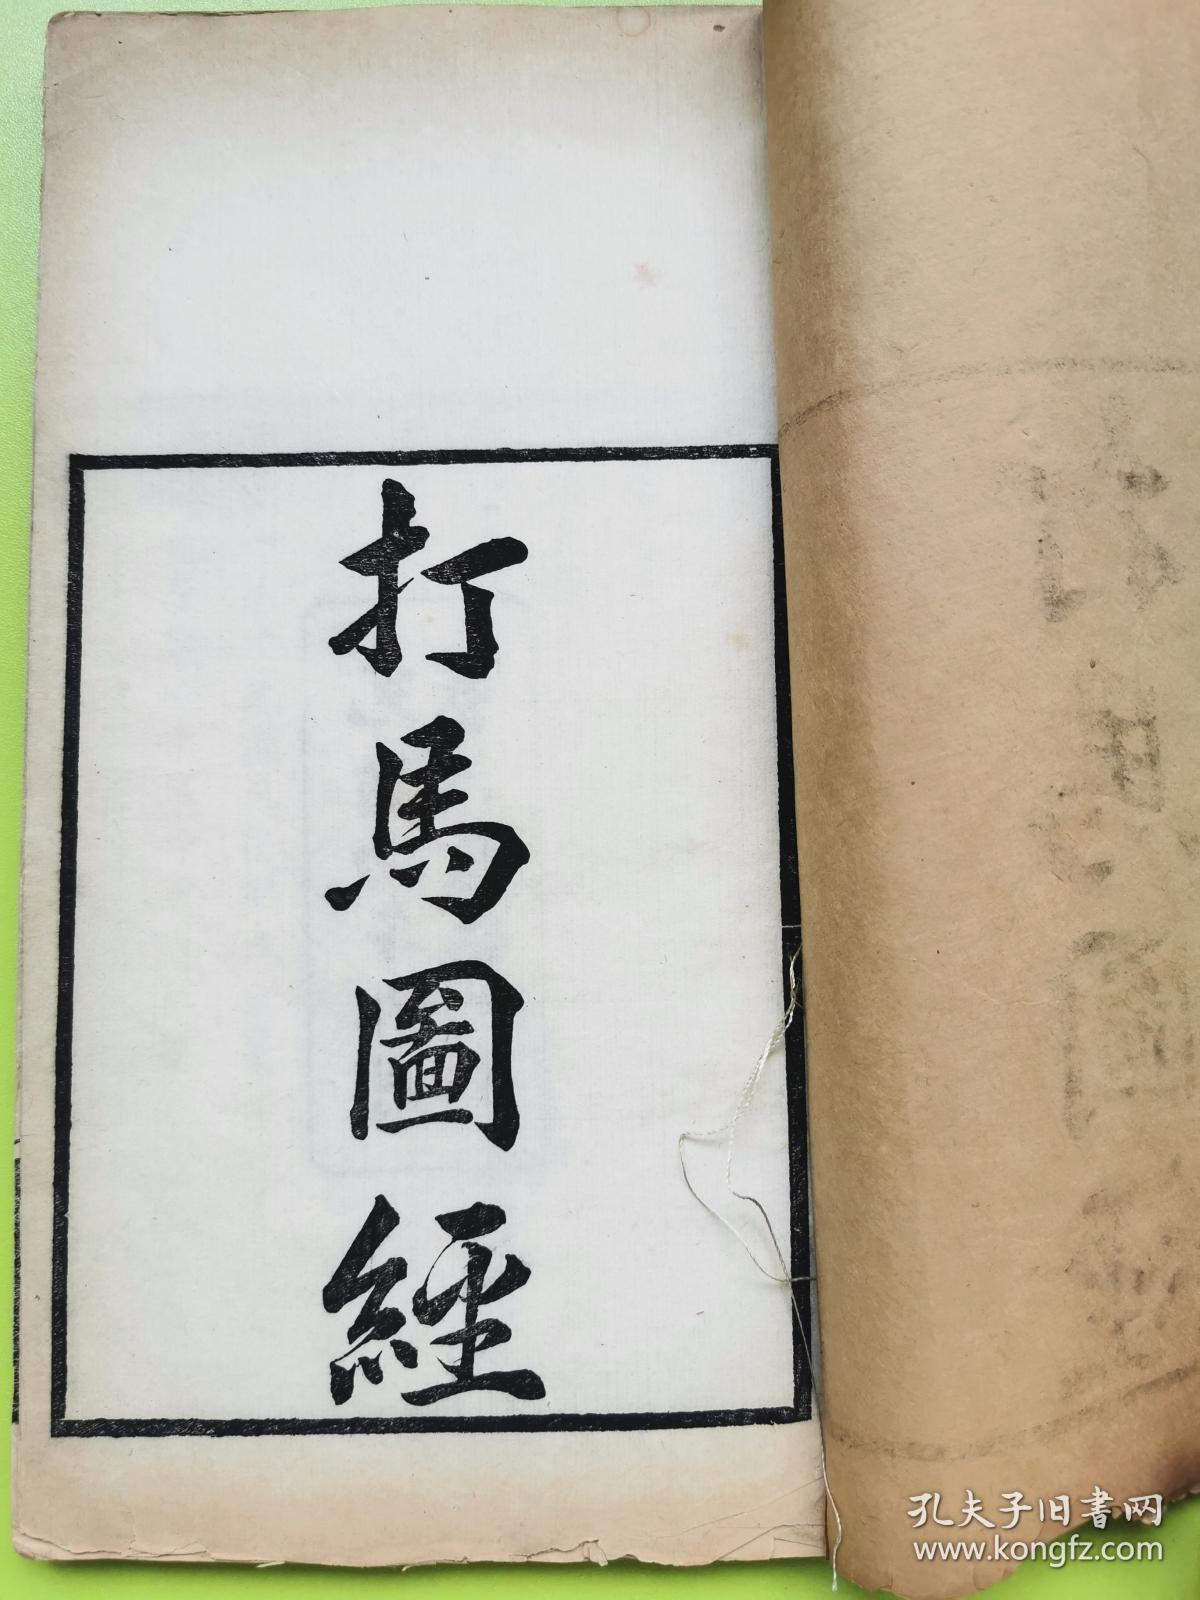 打馬圖經
孔夫子旧書网
www.kongfz.com